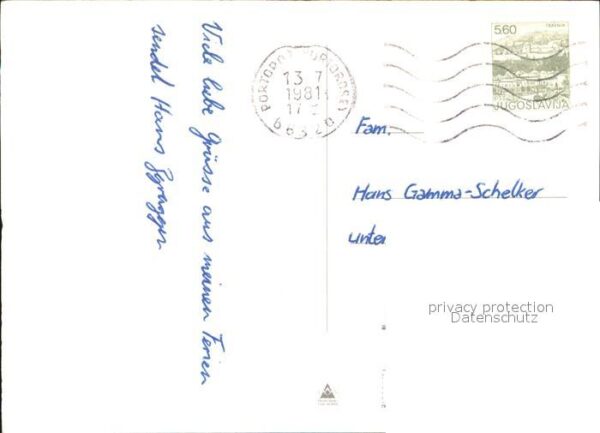 Viele liebe Grüsse aus meinen Ferien
sendet Hans
PORTOROŽ
13 7
1981
17
66320
5.60
JUGOSLAVIJA
Fam.
Hans Gamma-Schelker
unter
privacy protection
Datenschutz